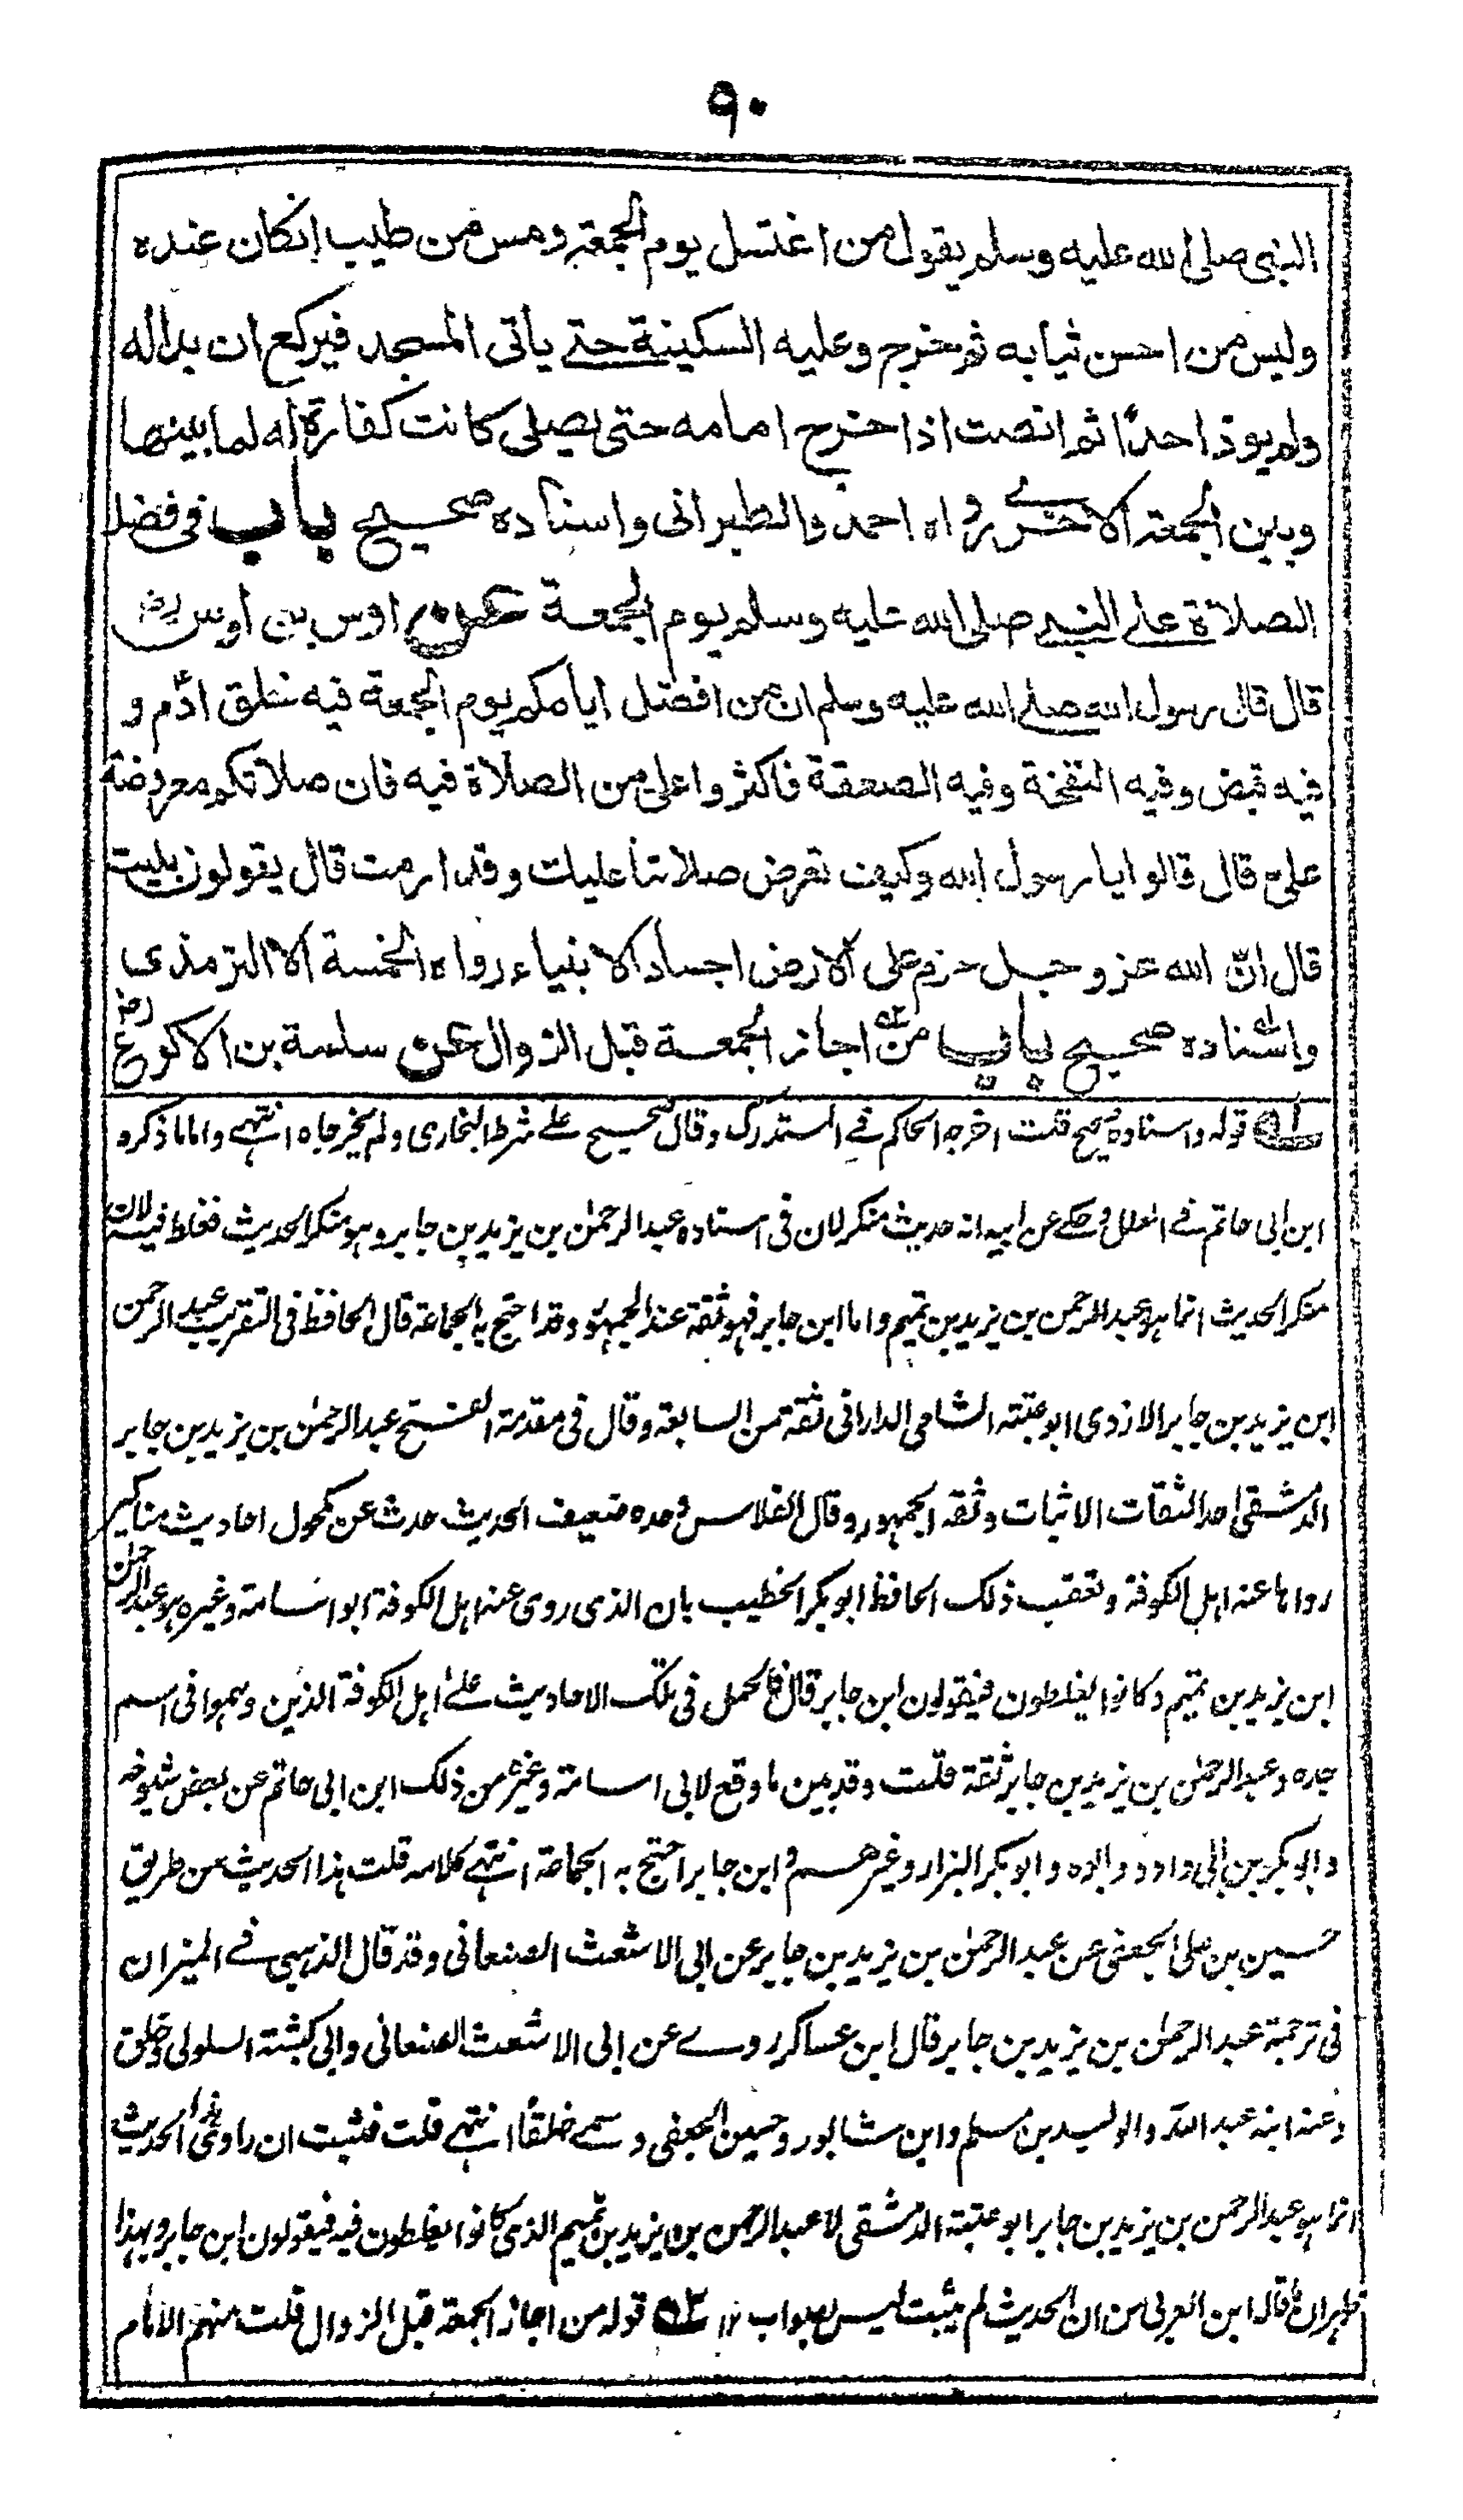 ٩٠
النبى صلى الله عليه وسلم يقول من اغتسل يوم الجمعة ومس من طيب انكان عنده
ولبس من احسن ثيابه ثم خرج وعليه السكينة حتے ياتى المسجد فيركع ان بدا له
ولم يوذ احدًا ثم انصت اذا خرج امامه حتى يصلى كانت كفارة له لما بينها
وبين الجمعة الاخرے رواه احمد والطبرانى واسناده صحيح باب فى فضل
الصلاة علے النبى صلى الله عليه وسلم يوم الجمعة عن اوس بن اوس رضـ
قال قال رسول الله صلے الله عليه وسلم ان من افضل ايامكم يوم الجمعة فيه خلق ادم و
فيه قبض وفيه النفخة وفيه الصعقة فاكثروا على من الصلاة فيه فان صلاتكم معروضة
على قال قالوا يا رسول الله وكيف تعرض صلاتنا عليك وقد ارمت قال يقولون بليت
قال ان الله عز وجل حرم على الارض اجساد الانبياء رواه الخمسة الا الترمذى
واسناده صحيح باب من اجاز الجمعة قبل الزوال عن سلمة بن الاكوع رضـ
لـه قوله واسناده صحيح قلت اخرجه الحاكم فے المستدرك وقال صحيح علے شرط البخارى ولم يخرجاه انتهے واما ما ذكره
ابن ابى حاتم فے العلل وحكے عن ابيه انه حديث منكر لان فى اسناده عبد الرحمٰن بن يزيد بن جابر وهو منكر الحديث فغلط فيه لان
منكر الحديث انما هو عبد الرحمن بن يزيد بن تميم واما ابن جابر فهو ثقة عند الجمهور وقد احتج به الجماعة قال الحافظ فى التقريب عبد الرحمن
ابن يزيد بن جابر الازدى ابو عتبة الشامى الدارانى ثقة من السابعة وقال فى مقدمة الفتح عبد الرحمٰن بن يزيد بن جابر
الدمشقى احد الثقات الاثبات وثقه الجمهور وقال الفلاس وحده ضعيف الحديث حدث عن مكحول احاديث مناكير
رواها عنه اهل الكوفة وتعقب ذلك الحافظ ابو بكر الخطيب بان الذى روى عنه اهل الكوفة ابو اسامة وغيره هو عبد الرحمٰن
ابن يزيد بن تميم وكانوا يغلطون فيقولون ابن جابر قال فالحمل فى تلك الاحاديث علے اهل الكوفة الذين وهموا فى اسم
جده وعبد الرحمٰن بن يزيد بن جابر ثقة قلت وقد بين ما وقع لابى اسامة وغيره من ذلك ابن ابى حاتم عن بعض شيوخه
وابو بكر بن ابى داود وابوه وابو بكر البزار وغيرهم وابن جابر احتج به الجماعة انتهے كلامه قلت هذا الحديث من طريق
حسين بن على الجعفى عن عبد الرحمٰن بن يزيد بن جابر عن ابى الاشعث الصنعانى وقد قال الذهبى فے الميزان
فى ترجمة عبد الرحمٰن بن يزيد بن جابر قال ابن عساكر روے عن ابى الاشعث الصنعانى وابى كبشة السلولى وخلق
وعنه ابنه عبد الله والوليد بن مسلم وابن شابور وحسين الجعفى وسمے خلقًا انتهے قلت فثبت ان راوى هذا الحديث
انما هو عبد الرحمن بن يزيد بن جابر ابو عتبة الدمشقى لا عبد الرحمن بن يزيد بن تميم الذى كانوا يغلطون فيه فيقولون ابن جابر وبهذا
ظهر ان ما قاله ابن العربى من ان الحديث لم يثبت ليس بصواب ١٢ ٢ـه قوله من اجاز الجمعة قبل الزوال قلت منهم الامام